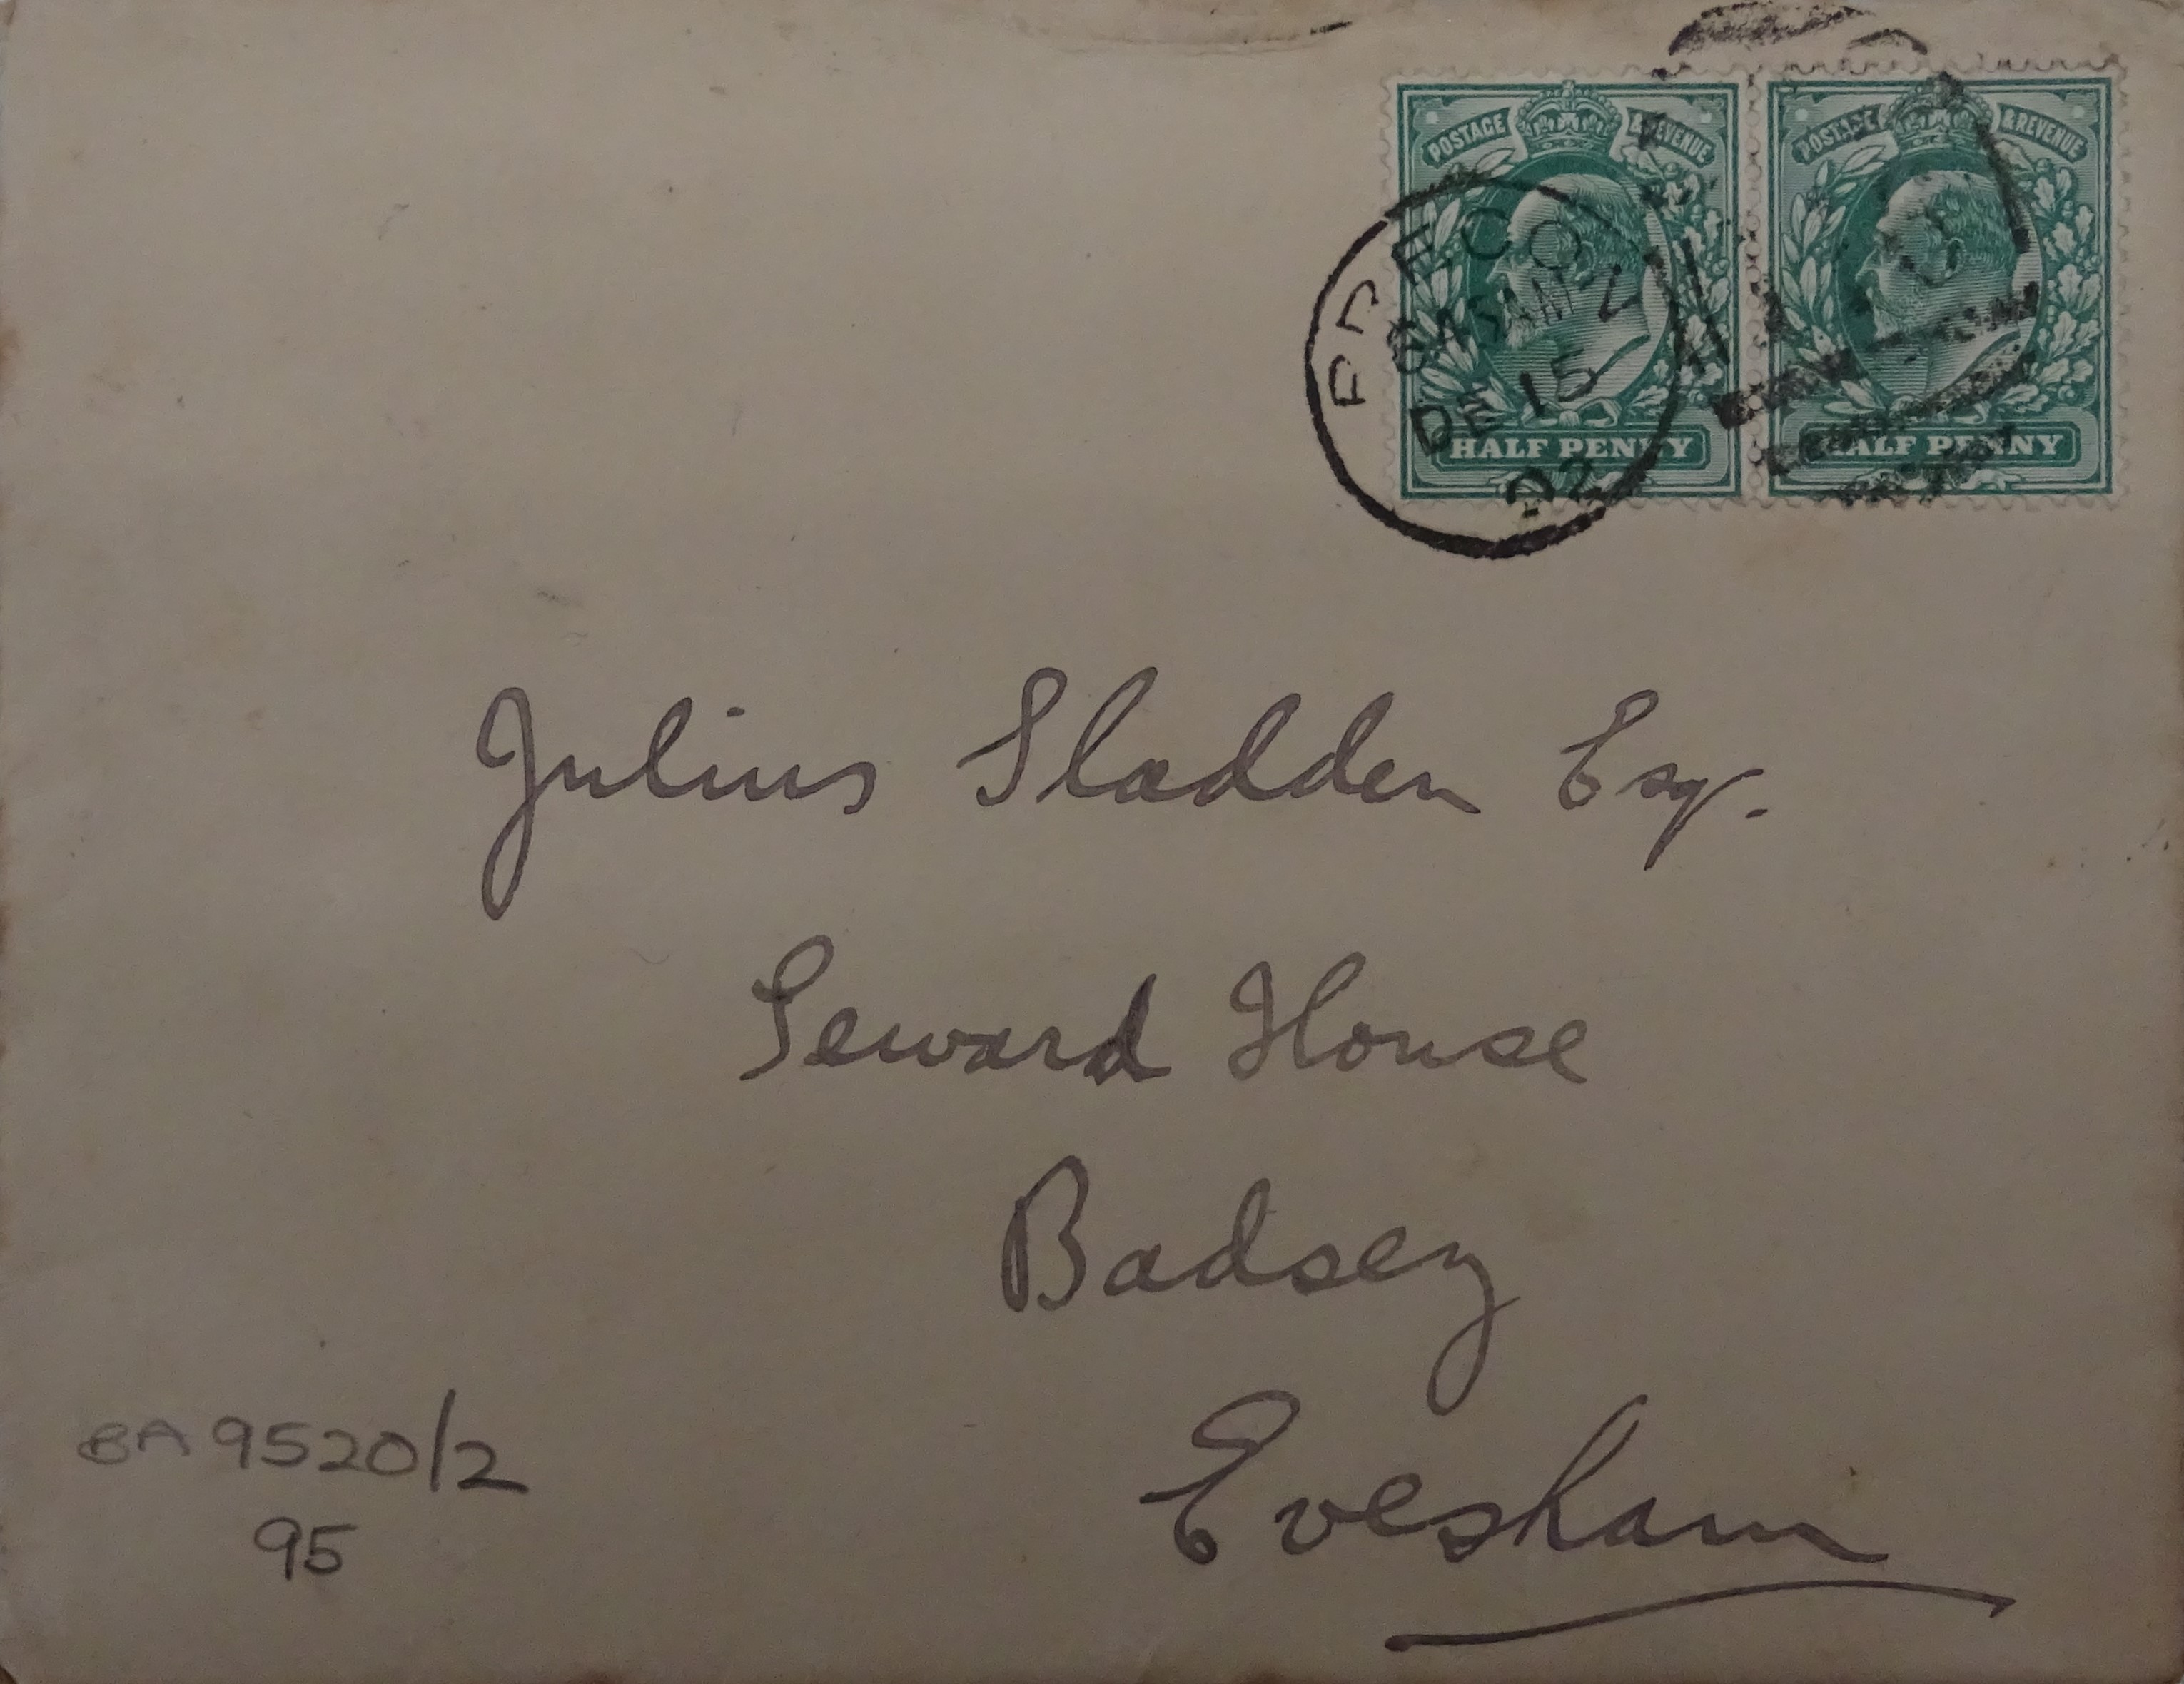 POSTAGE & REVENUE POSTAGE & REVENUE
BRECON
8.45AM
DE 15
02
HALF PENNY HALF PENNY
Julius Sladden Esq.
Seward House
Badsey
Evesham
BA 9520/2
95